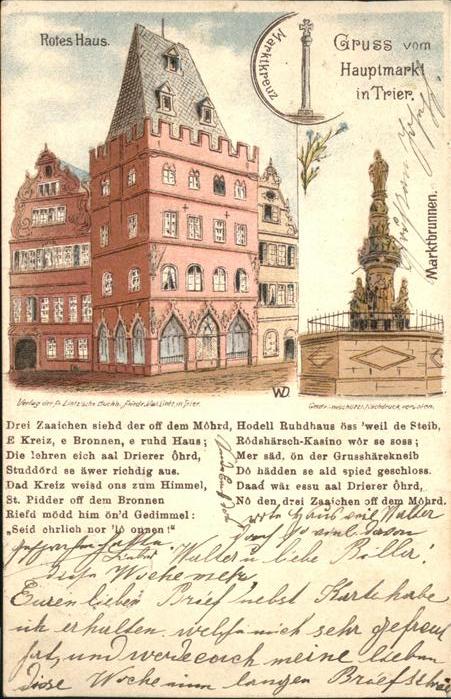 Rotes Haus.
Marktkreuz
Gruss vom
Hauptmarkt
in Trier.
Marktbrunnen.
WD
Verlag der Fr. Lintz'sche Buchh., Friedr. Val. Lintz, in Trier.
Gesetzl. geschützt, Nachdruck verboten.
Drei Zaaichen siehd der off dem Möhrd,
E Kreiz, e Bronnen, e ruhd Haus;
Die lehren eich aal Drierer Öhrd,
Studdörd se äwer richdig aus.
Dad Kreiz weisd ons zum Himmel,
St. Pidder off dem Bronnen
Riefd mödd him ön'd Gedimmel:
„Seid ehrlich nor
Hodell Ruhdhaus öss 'weil de Steib,
Rödshärsch-Kasino wör se soss;
Mer säd, ön der Grusshärekneib
Dö hädden se ald spied geschloss.
Daad wär essu aal Drierer Öhrd,
Nö den drei Zaaichen off dem Möhrd.
Walter
doch so viel davon
Walter u liebe
diese Woche mehr
Euren lieben Brief nebst Karte habe
ich erhalten, welche mich sehr gefreut
hat, und werde euch meine lieben
diese Woche einen langen Brief